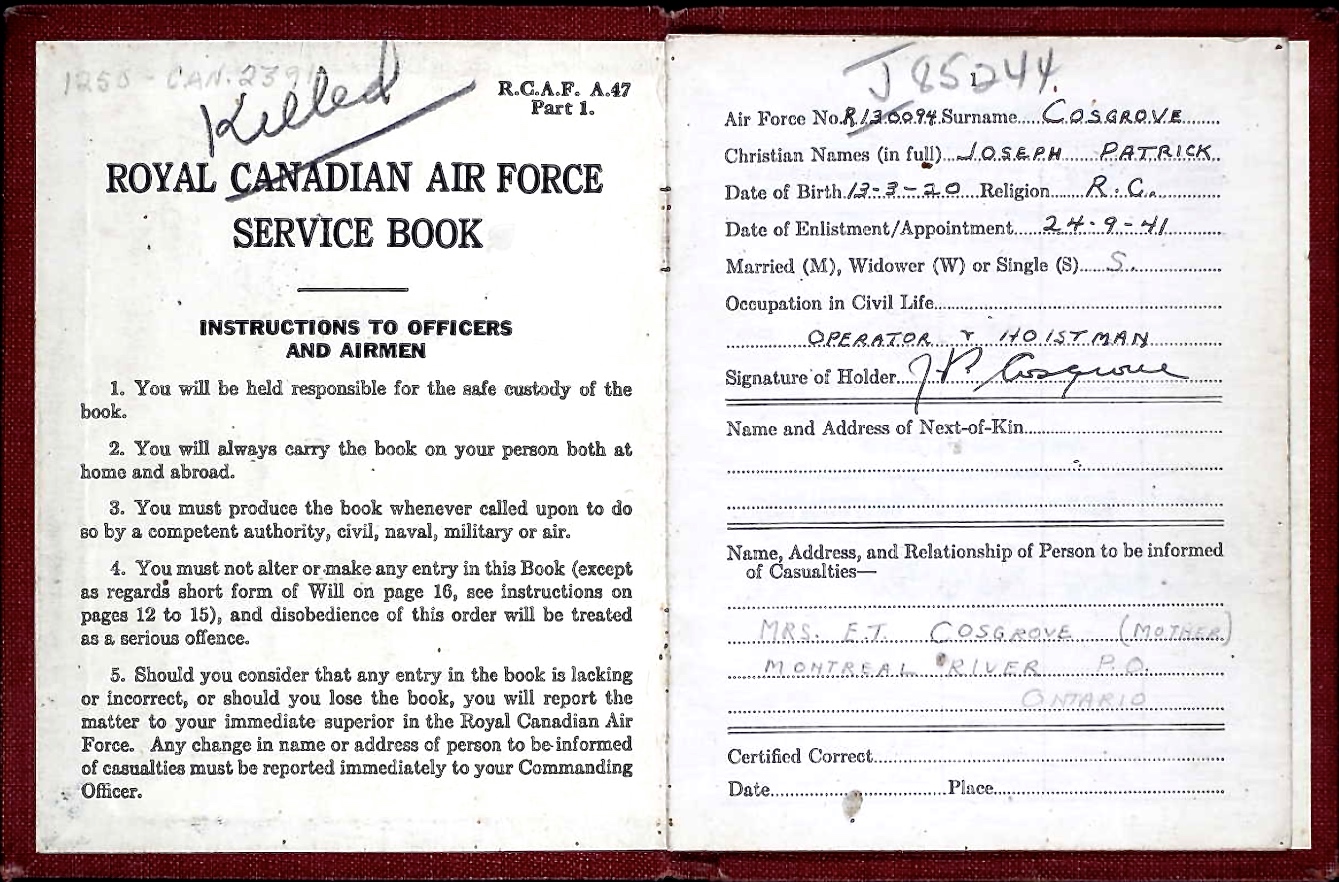 1250 - CAN. 2391
Killed
R.C.A.F. A.47
Part 1.
ROYAL CANADIAN AIR FORCE
SERVICE BOOK
INSTRUCTIONS TO OFFICERS
AND AIRMEN
1. You will be held responsible for the safe custody of the
book.
2. You will always carry the book on your person both at
home and abroad.
3. You must produce the book whenever called upon to do
so by a competent authority, civil, naval, military or air.
4. You must not alter or make any entry in this Book (except
as regards short form of Will on page 16, see instructions on
pages 12 to 15), and disobedience of this order will be treated
as a serious offence.
5. Should you consider that any entry in the book is lacking
or incorrect, or should you lose the book, you will report the
matter to your immediate superior in the Royal Canadian Air
Force. Any change in name or address of person to be informed
of casualties must be reported immediately to your Commanding
Officer.
J 85244.
Air Force No. R130094 Surname COSGROVE
Christian Names (in full) JOSEPH PATRICK
Date of Birth 13-3-20 Religion R.C.
Date of Enlistment/Appointment 24-9-41
Married (M), Widower (W) or Single (S) S.
Occupation in Civil Life
OPERATOR & HOISTMAN
Signature of Holder JP Cosgrove
Name and Address of Next-of-Kin
Name, Address, and Relationship of Person to be informed
of Casualties—
MRS. E.T. COSGROVE (MOTHER)
MONTREAL RIVER P.O.
ONTARIO
Certified Correct
Date Place